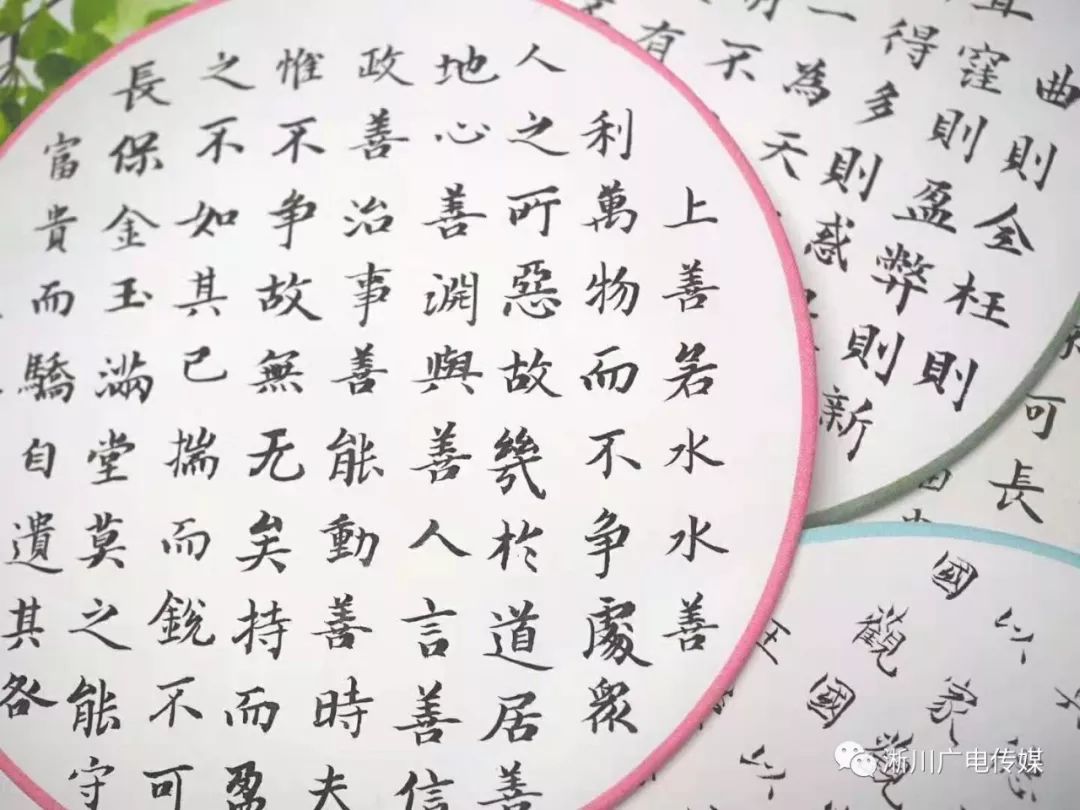 上善若水水善
利萬物而不争處衆
人之所惡故幾於道居善
地心善淵與善人言善信
政善治事善能動善時夫
惟不争故無无矣持而盈
之不如其已揣而銳不可
長保金玉滿堂莫之能守
富貴而驕自遺其咎
曲則全枉則
直窪則盈弊則新
得多則惑
一為天
不
有
可長
以
家
國
觀
國
淅川广电传媒